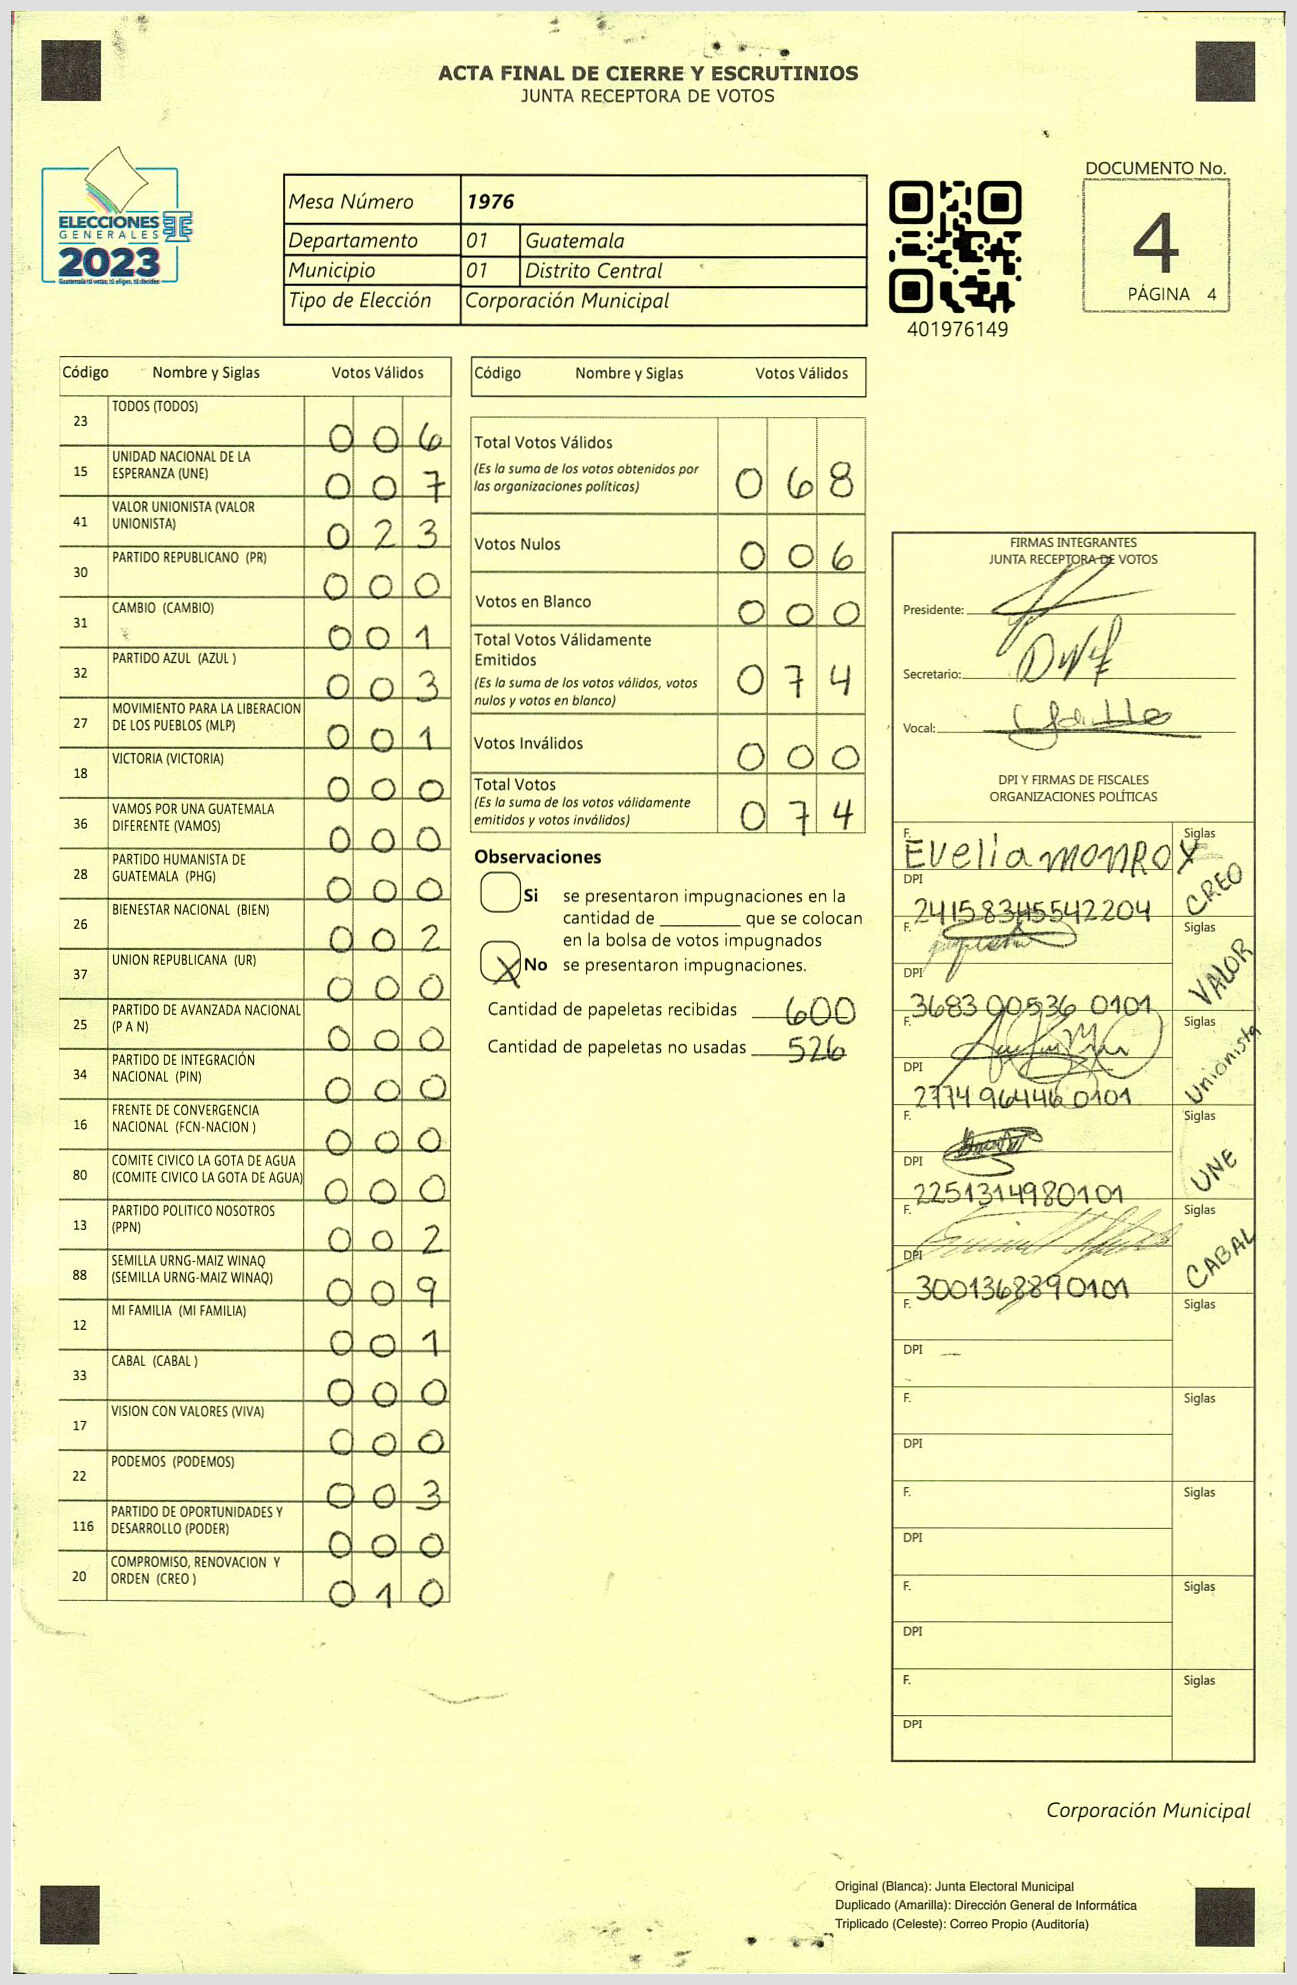 ACTA FINAL DE CIERRE Y ESCRUTINIOS
JUNTA RECEPTORA DE VOTOS
ELECCIONES
GENERALES
2023
Guatemala tú votas, tú eliges, tú decides
Mesa Número 1976
Departamento 01 Guatemala
Municipio 01 Distrito Central
Tipo de Elección Corporación Municipal
401976149
DOCUMENTO No.
4
PÁGINA 4
Código Nombre y Siglas Votos Válidos
23 TODOS (TODOS) 0 0 6
15 UNIDAD NACIONAL DE LA ESPERANZA (UNE) 0 0 7
41 VALOR UNIONISTA (VALOR UNIONISTA) 0 2 3
30 PARTIDO REPUBLICANO (PR) 0 0 0
31 CAMBIO (CAMBIO) 0 0 1
32 PARTIDO AZUL (AZUL ) 0 0 3
27 MOVIMIENTO PARA LA LIBERACION DE LOS PUEBLOS (MLP) 0 0 1
18 VICTORIA (VICTORIA) 0 0 0
36 VAMOS POR UNA GUATEMALA DIFERENTE (VAMOS) 0 0 0
28 PARTIDO HUMANISTA DE GUATEMALA (PHG) 0 0 0
26 BIENESTAR NACIONAL (BIEN) 0 0 2
37 UNION REPUBLICANA (UR) 0 0 0
25 PARTIDO DE AVANZADA NACIONAL (P A N) 0 0 0
34 PARTIDO DE INTEGRACIÓN NACIONAL (PIN) 0 0 0
16 FRENTE DE CONVERGENCIA NACIONAL (FCN-NACION ) 0 0 0
80 COMITE CIVICO LA GOTA DE AGUA (COMITE CIVICO LA GOTA DE AGUA) 0 0 0
13 PARTIDO POLITICO NOSOTROS (PPN) 0 0 2
88 SEMILLA URNG-MAIZ WINAQ (SEMILLA URNG-MAIZ WINAQ) 0 0 9
12 MI FAMILIA (MI FAMILIA) 0 0 1
33 CABAL (CABAL ) 0 0 0
17 VISION CON VALORES (VIVA) 0 0 0
22 PODEMOS (PODEMOS) 0 0 3
116 PARTIDO DE OPORTUNIDADES Y DESARROLLO (PODER) 0 0 0
20 COMPROMISO, RENOVACION Y ORDEN (CREO ) 0 1 0
Código Nombre y Siglas Votos Válidos
Total Votos Válidos 0 6 8
(Es la suma de los votos obtenidos por
las organizaciones políticas)
Votos Nulos 0 0 6
Votos en Blanco 0 0 0
Total Votos Válidamente
Emitidos 0 7 4
(Es la suma de los votos válidos, votos
nulos y votos en blanco)
Votos Inválidos 0 0 0
Total Votos 0 7 4
(Es la suma de los votos válidamente
emitidos y votos inválidos)
Observaciones
Si se presentaron impugnaciones en la
cantidad de ________ que se colocan
en la bolsa de votos impugnados
X No se presentaron impugnaciones.
Cantidad de papeletas recibidas 600
Cantidad de papeletas no usadas 526
FIRMAS INTEGRANTES
JUNTA RECEPTORA DE VOTOS
Presidente:
Secretario:
Vocal:
DPI Y FIRMAS DE FISCALES
ORGANIZACIONES POLÍTICAS
F. Evelia monroy Siglas CREO
DPI 24158345542204
F. Siglas VALOR
DPI 3683 00536 0101
F. Siglas Unionista
DPI 2774 96446 0101
F. Siglas UNE
DPI 2251314980101
F. Siglas CABAL
DPI 3001368890101
F. Siglas
DPI
F. Siglas
DPI
F. Siglas
DPI
F. Siglas
DPI
F. Siglas
DPI
Corporación Municipal
Original (Blanca): Junta Electoral Municipal
Duplicado (Amarilla): Dirección General de Informática
Triplicado (Celeste): Correo Propio (Auditoría)